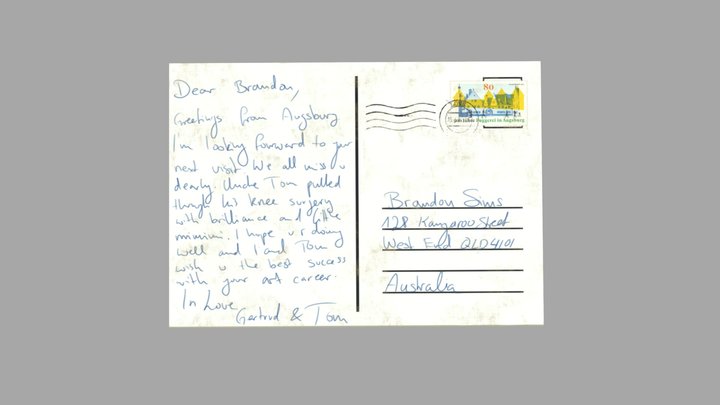 Dear Brandon,
Greetings from Augsburg
I'm looking forward to your
next visit. We all miss u
dearly. Uncle Tom pulled
through his knee surgery
with brilliance and little
mimimi. I hope u r doing
well and I and Tom
wish u the best success
with your art career.
In Love
Gertrud & Tom
80
500 Jahre Fuggerei in Augsburg
Brandon Sims
128 Kangaroo Street
West End QLD 4101
Australia